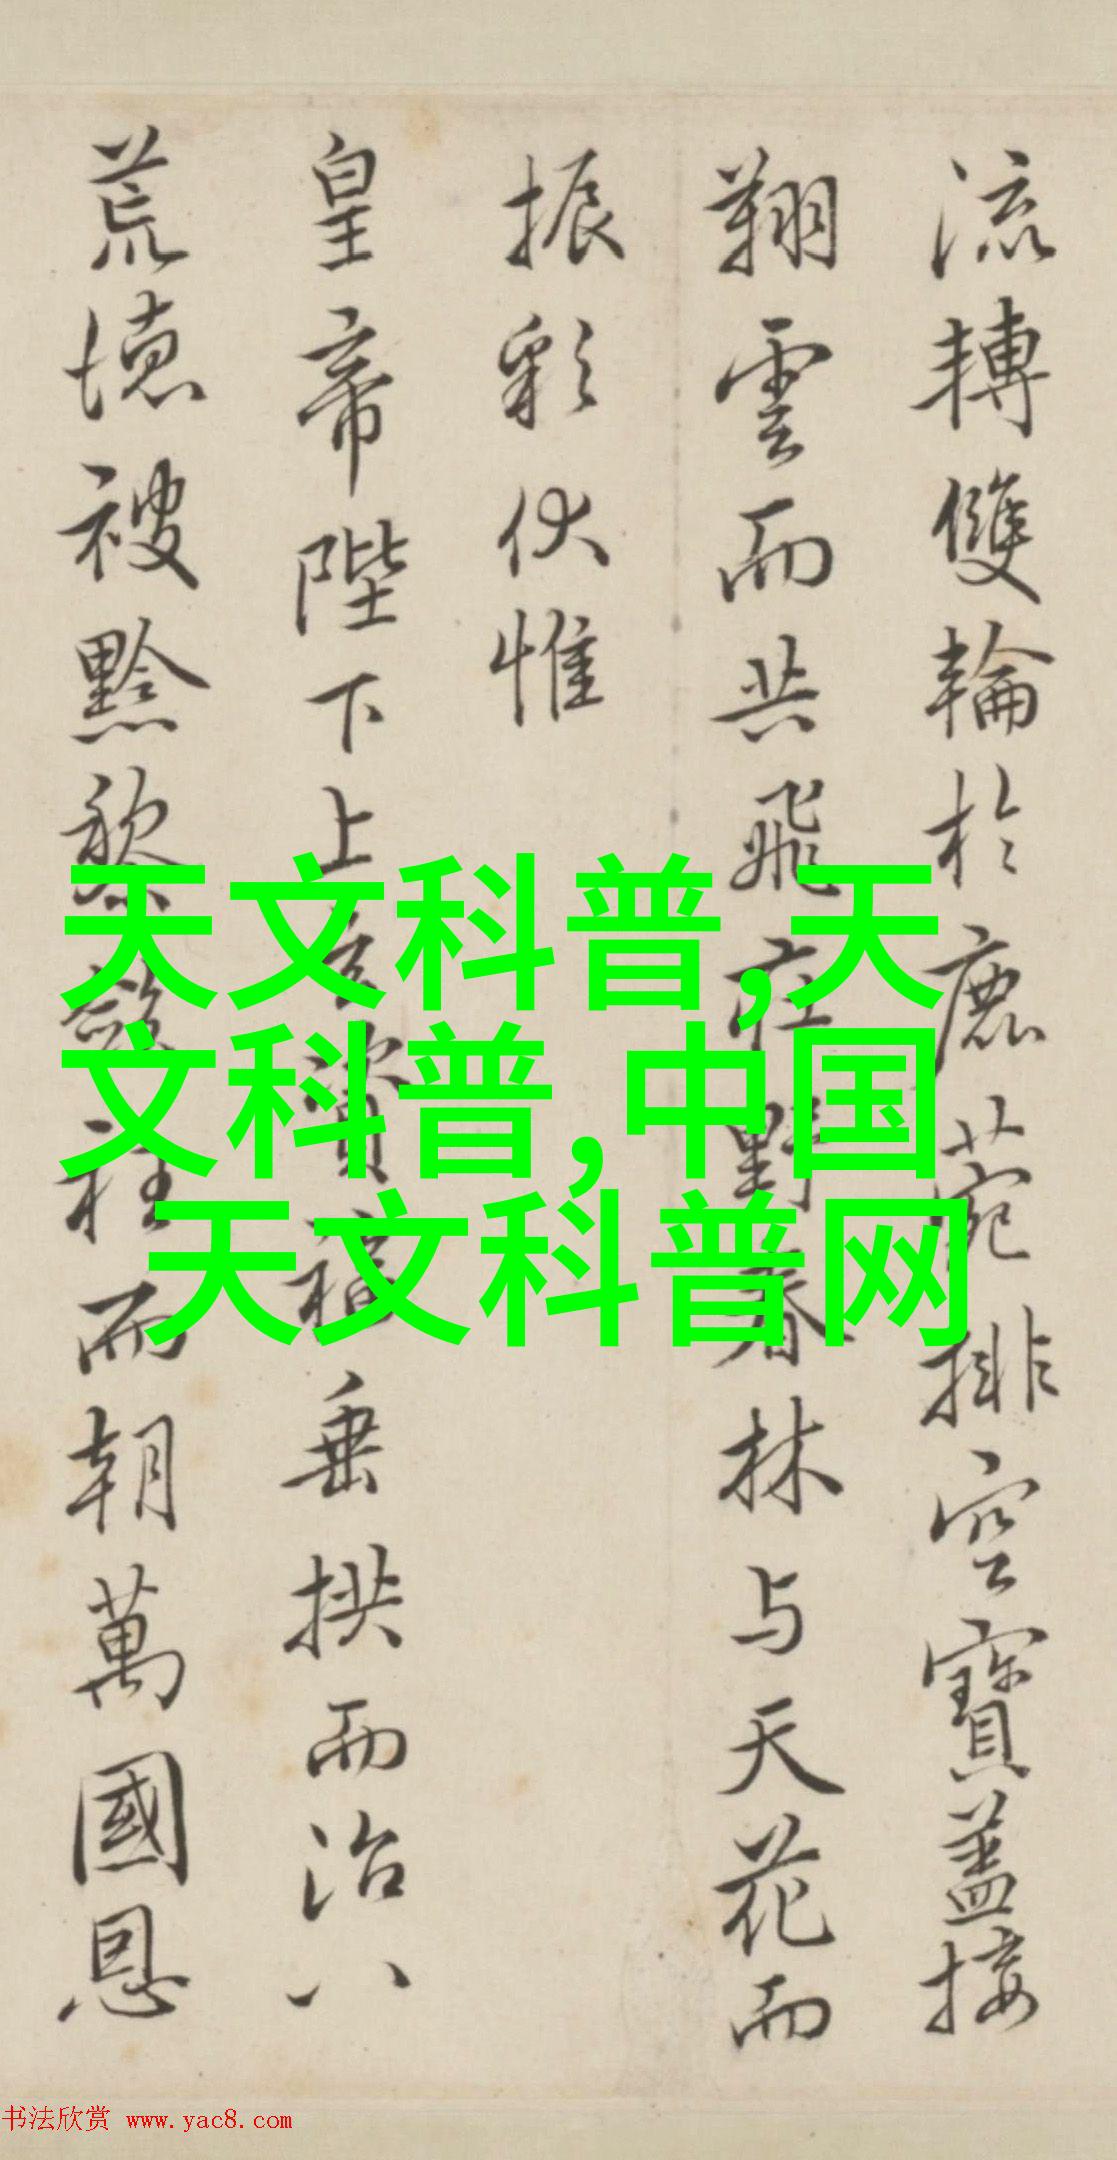 流轉雙輪於鹿苑排空寶蓋接
翔雲而共飛莊野春林与天花而
振彩伏惟
皇帝陛下上玄資福垂拱而治八
荒德被黔黎斂衽而朝萬國恩
天文科普,天
文科普,中国
天文科普网
书法欣赏 www.yac8.com